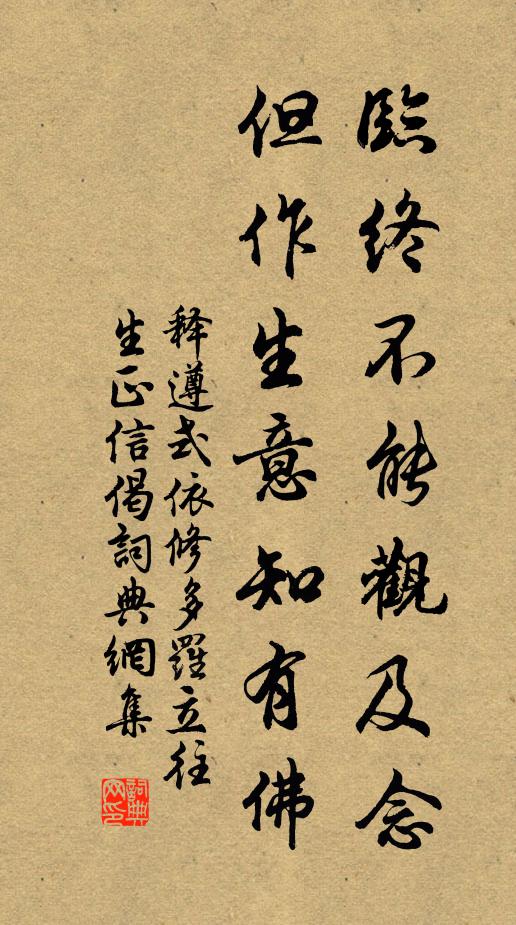 臨終不能觀及念
但作生意知有佛
释遵式依修多羅立往
生正信偈詞典網集
詞典网印